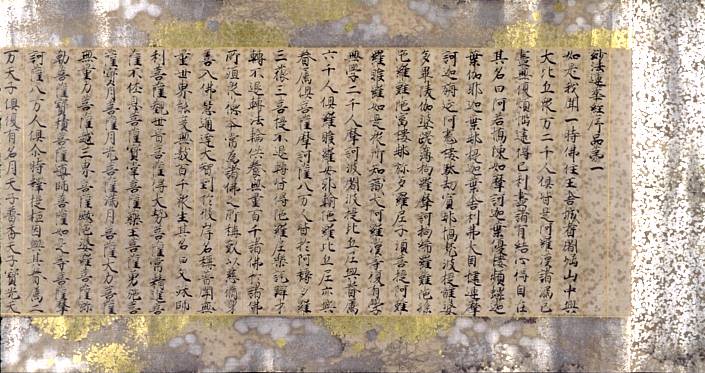 妙法蓮華經序品第一
如是我聞一時佛住王舍城耆闍崛山中與
大比丘衆万二千人俱皆是阿羅漢諸漏已
盡無復煩惱逮得己利盡諸有結心得自在
其名曰阿若憍陳如摩訶迦葉優樓頻螺迦
葉伽耶迦葉那提迦葉舍利弗大目揵連摩
訶迦旃延阿㝹樓馱劫賓那憍梵波提離婆
多畢陵伽婆蹉薄拘羅摩訶拘絺羅難陀孫
陀羅難陀富樓那弥多羅尼子須菩提阿難
羅睺羅如是衆所知識大阿羅漢等復有學
無學二千人摩訶波闍波提比丘尼與眷屬
六千人俱羅睺羅母耶輸陀羅比丘尼亦與
眷屬俱菩薩摩訶薩八万人皆於阿耨多羅
三藐三菩提不退轉皆得陀羅尼樂說辯才
轉不退轉法輪供養無量百千諸佛於諸佛
所殖衆德本常為諸佛之所稱歎以慈脩身
善入佛慧通達大智到於彼岸名稱普聞無
量世界能度無數百千衆生其名曰文殊師
利菩薩觀世音菩薩得大勢菩薩常精進菩
薩不休息菩薩寶掌菩薩藥王菩薩勇施菩
薩寶月菩薩月光菩薩滿月菩薩大力菩薩
無量力菩薩越三界菩薩跋陀婆羅菩薩弥
勒菩薩寶積菩薩導師菩薩如是等菩薩摩
訶薩八万人俱尒時釋提桓因與其眷屬二
万天子俱復有名月天子普香天子寶光天